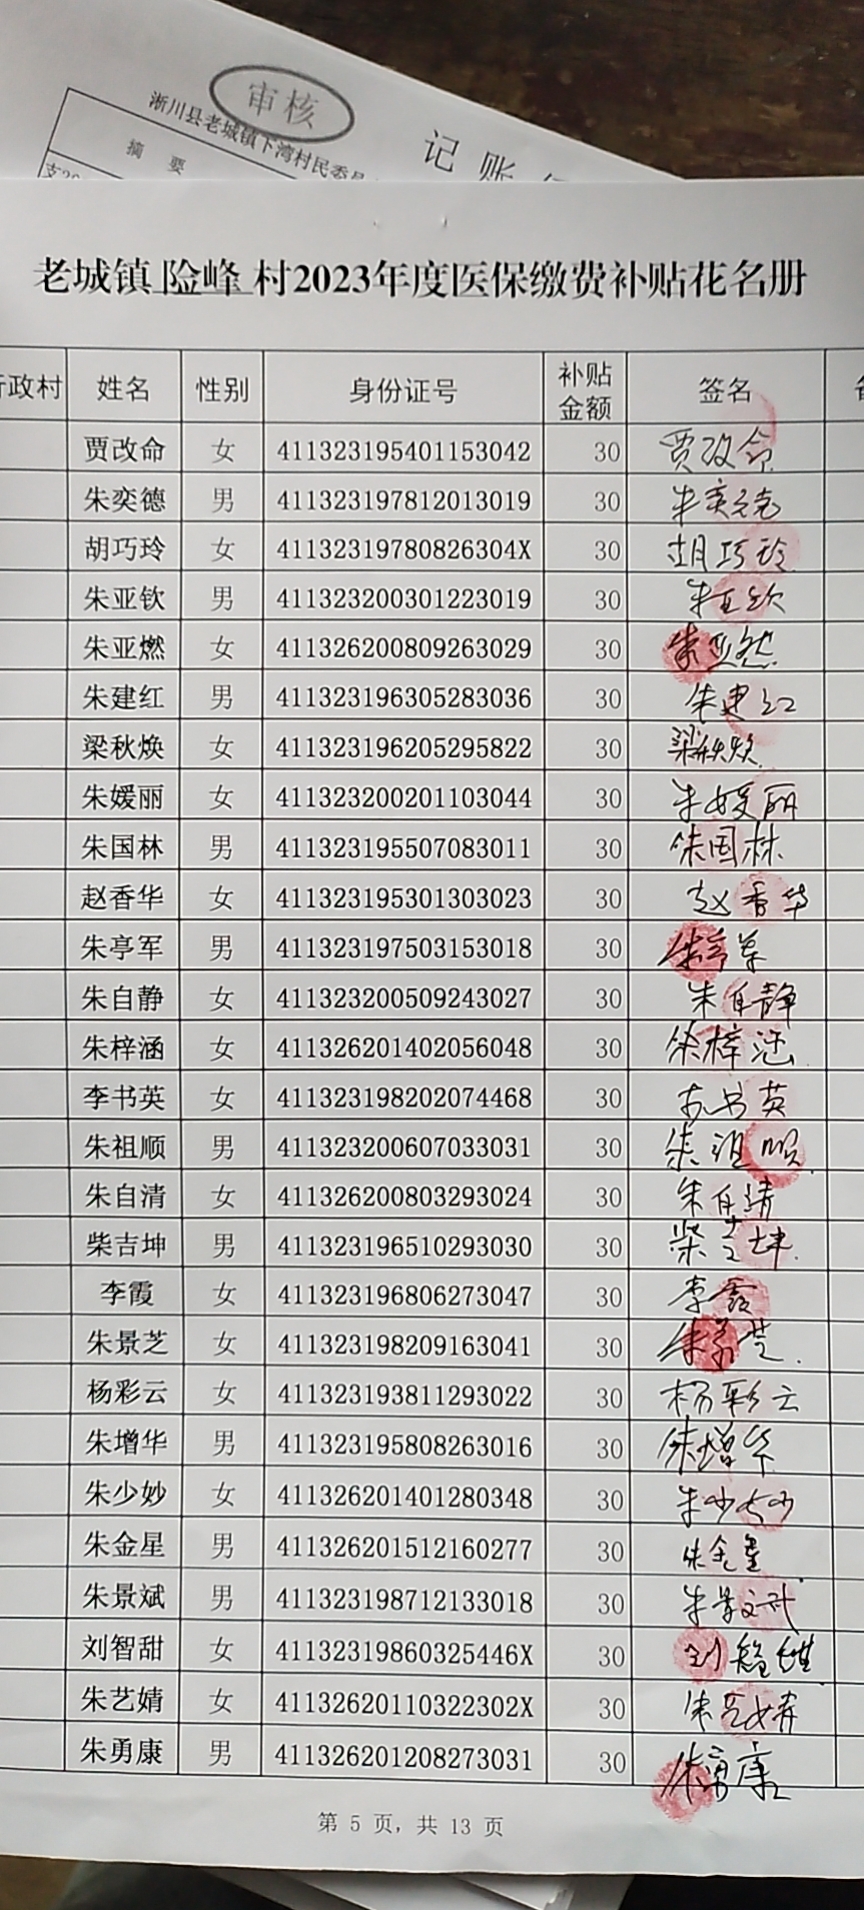 审核
淅川县老城镇下湾村民委员
记账
摘 要
老城镇 险峰 村2023年度医保缴费补贴花名册
行政村 姓名 性别 身份证号 补贴金额 签名
贾改命 女 411323195401153042 30 贾改命
朱奕德 男 411323197812013019 30 朱奕德
胡巧玲 女 41132319780826304X 30 胡巧玲
朱亚钦 男 411323200301223019 30 朱亚钦
朱亚燃 女 411326200809263029 30 朱亚然
朱建红 男 411323196305283036 30 朱建红
梁秋焕 女 411323196205295822 30 梁秋焕
朱媛丽 女 411323200201103044 30 朱媛丽
朱国林 男 411323195507083011 30 朱国林
赵香华 女 411323195301303023 30 赵香华
朱亭军 男 411323197503153018 30 朱亭军
朱自静 女 411323200509243027 30 朱自静
朱梓涵 女 411326201402056048 30 朱梓涵
李书英 女 411323198202074468 30 李书英
朱祖顺 男 411323200607033031 30 朱祖顺
朱自清 女 411326200803293024 30 朱自清
柴吉坤 男 411323196510293030 30 柴吉坤
李霞 女 411323196806273047 30 李霞
朱景芝 女 411323198209163041 30 朱景芝
杨彩云 女 411323193811293022 30 杨彩云
朱增华 男 411323195808263016 30 朱增华
朱少妙 女 411326201401280348 30 朱少妙
朱金星 男 411326201512160277 30 朱金星
朱景斌 男 411323198712133018 30 朱景斌
刘智甜 女 41132319860325446X 30
朱艺婧 女 41132620110322302X 30 朱艺婧
朱勇康 男 411326201208273031 30 朱勇康
第 5 页，共 13 页